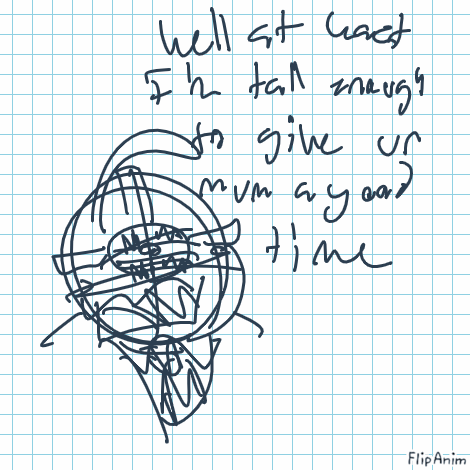 Well at least
I'm tall enough
to give ur
mum a good
time
FlipAnim